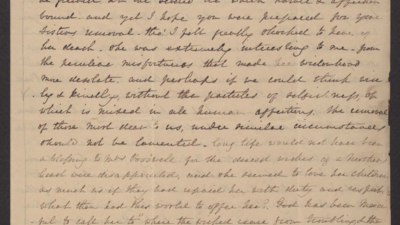 bound. and yet I hope you were prepared for your
Sisters removal. tho' I felt greatly shocked to hear of
her death. She was extremely interesting to me. from
the peculiar misfortunes that made her widowhood
more desolate. and perhaps if we could think use
& kindly, without the particles of selfishness, of
which is mixed in all human affections. The removal
of those most dear to us, under similar circumstances
should not be lamented. Long life would not have been
a blessing to Mrs for the dearest wishes of a Mother's
heart were disappointed, and she seemed to love her children
as much as if they had repaid her with duty and respect
what then had this world to offer her? God has been merci
ful to call her to "where the wicked cease from troubling & the